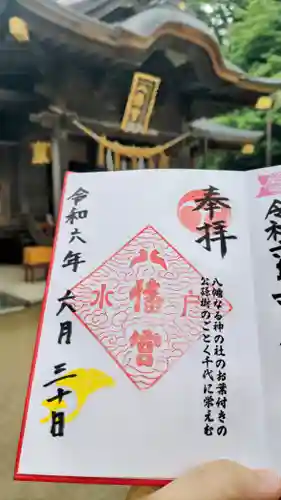 八幡宮
奉拝
八幡なる神の社のお葉付きの
公孫樹のごとく千代に栄えむ
水戸
八幡宮
令和六年六月三十日